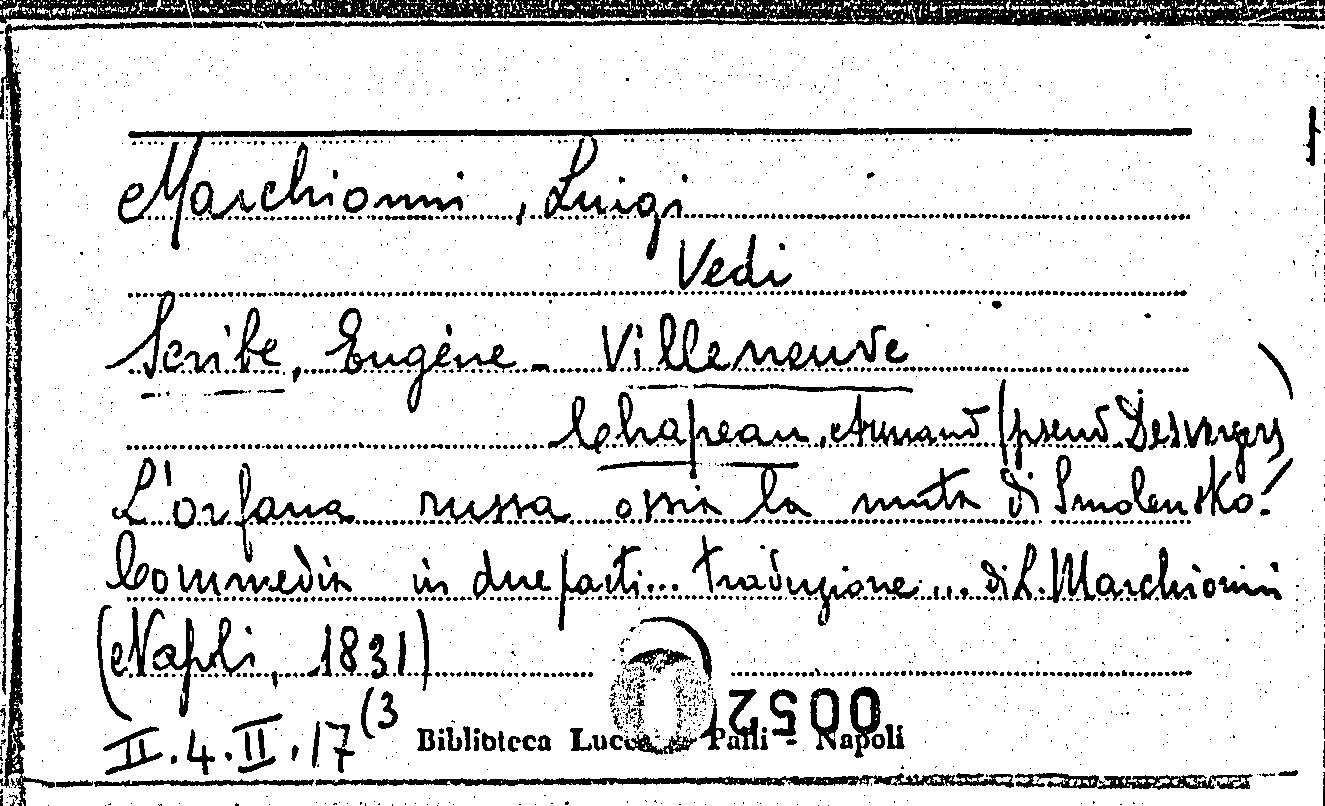 Marchionni, Luigi
Vedi
Scribe, Eugène - Villeneuve
Chapeau, Armand (pseud Desvergers)
L'orfana russa ossia la muta di Smolensko.
Commedia in due parti... traduzione... di L. Marchionni
(Napoli, 1831)
II.4.II.17(3
Biblioteca Lucchesi Palli - Napoli
0052